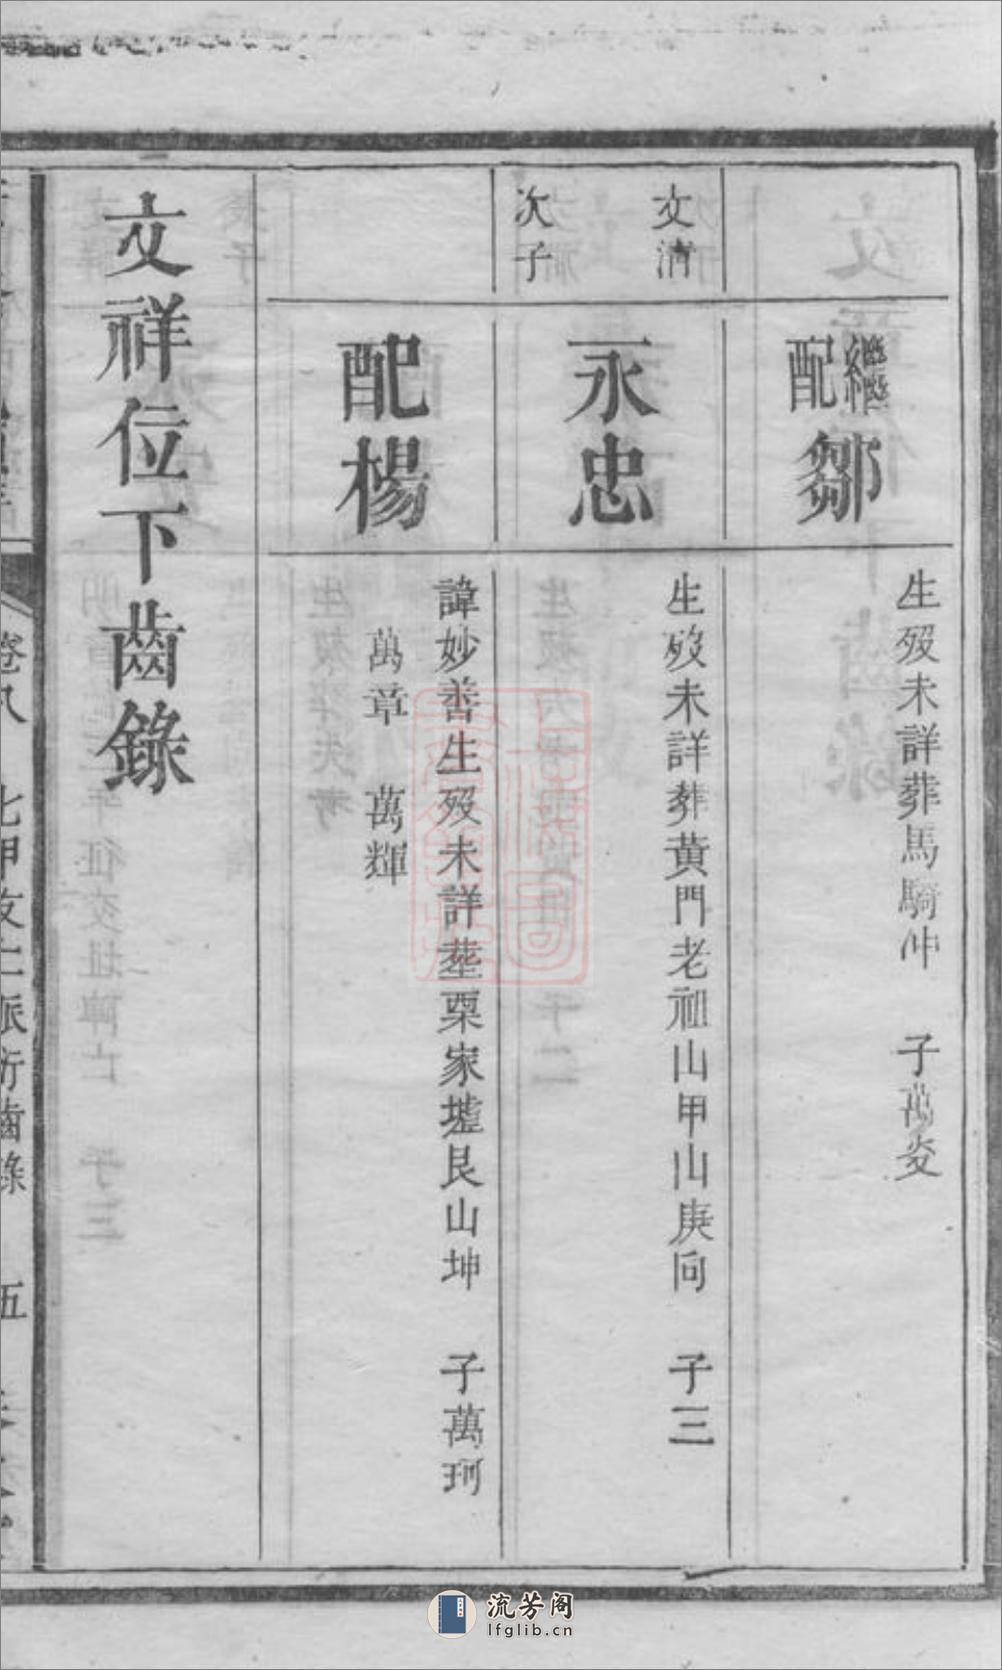 繼配鄒
生歿未詳葬馬騎仲 子萬炎
文清
次子
永忠
生歿未詳葬黃門老祖山甲山庚向 子三
配楊
諱妙善生歿未詳塟栗家墟艮山坤 子萬珂
萬章 萬輝
文祥位下齒錄
卷八
五
流芳阁
lfglib.cn